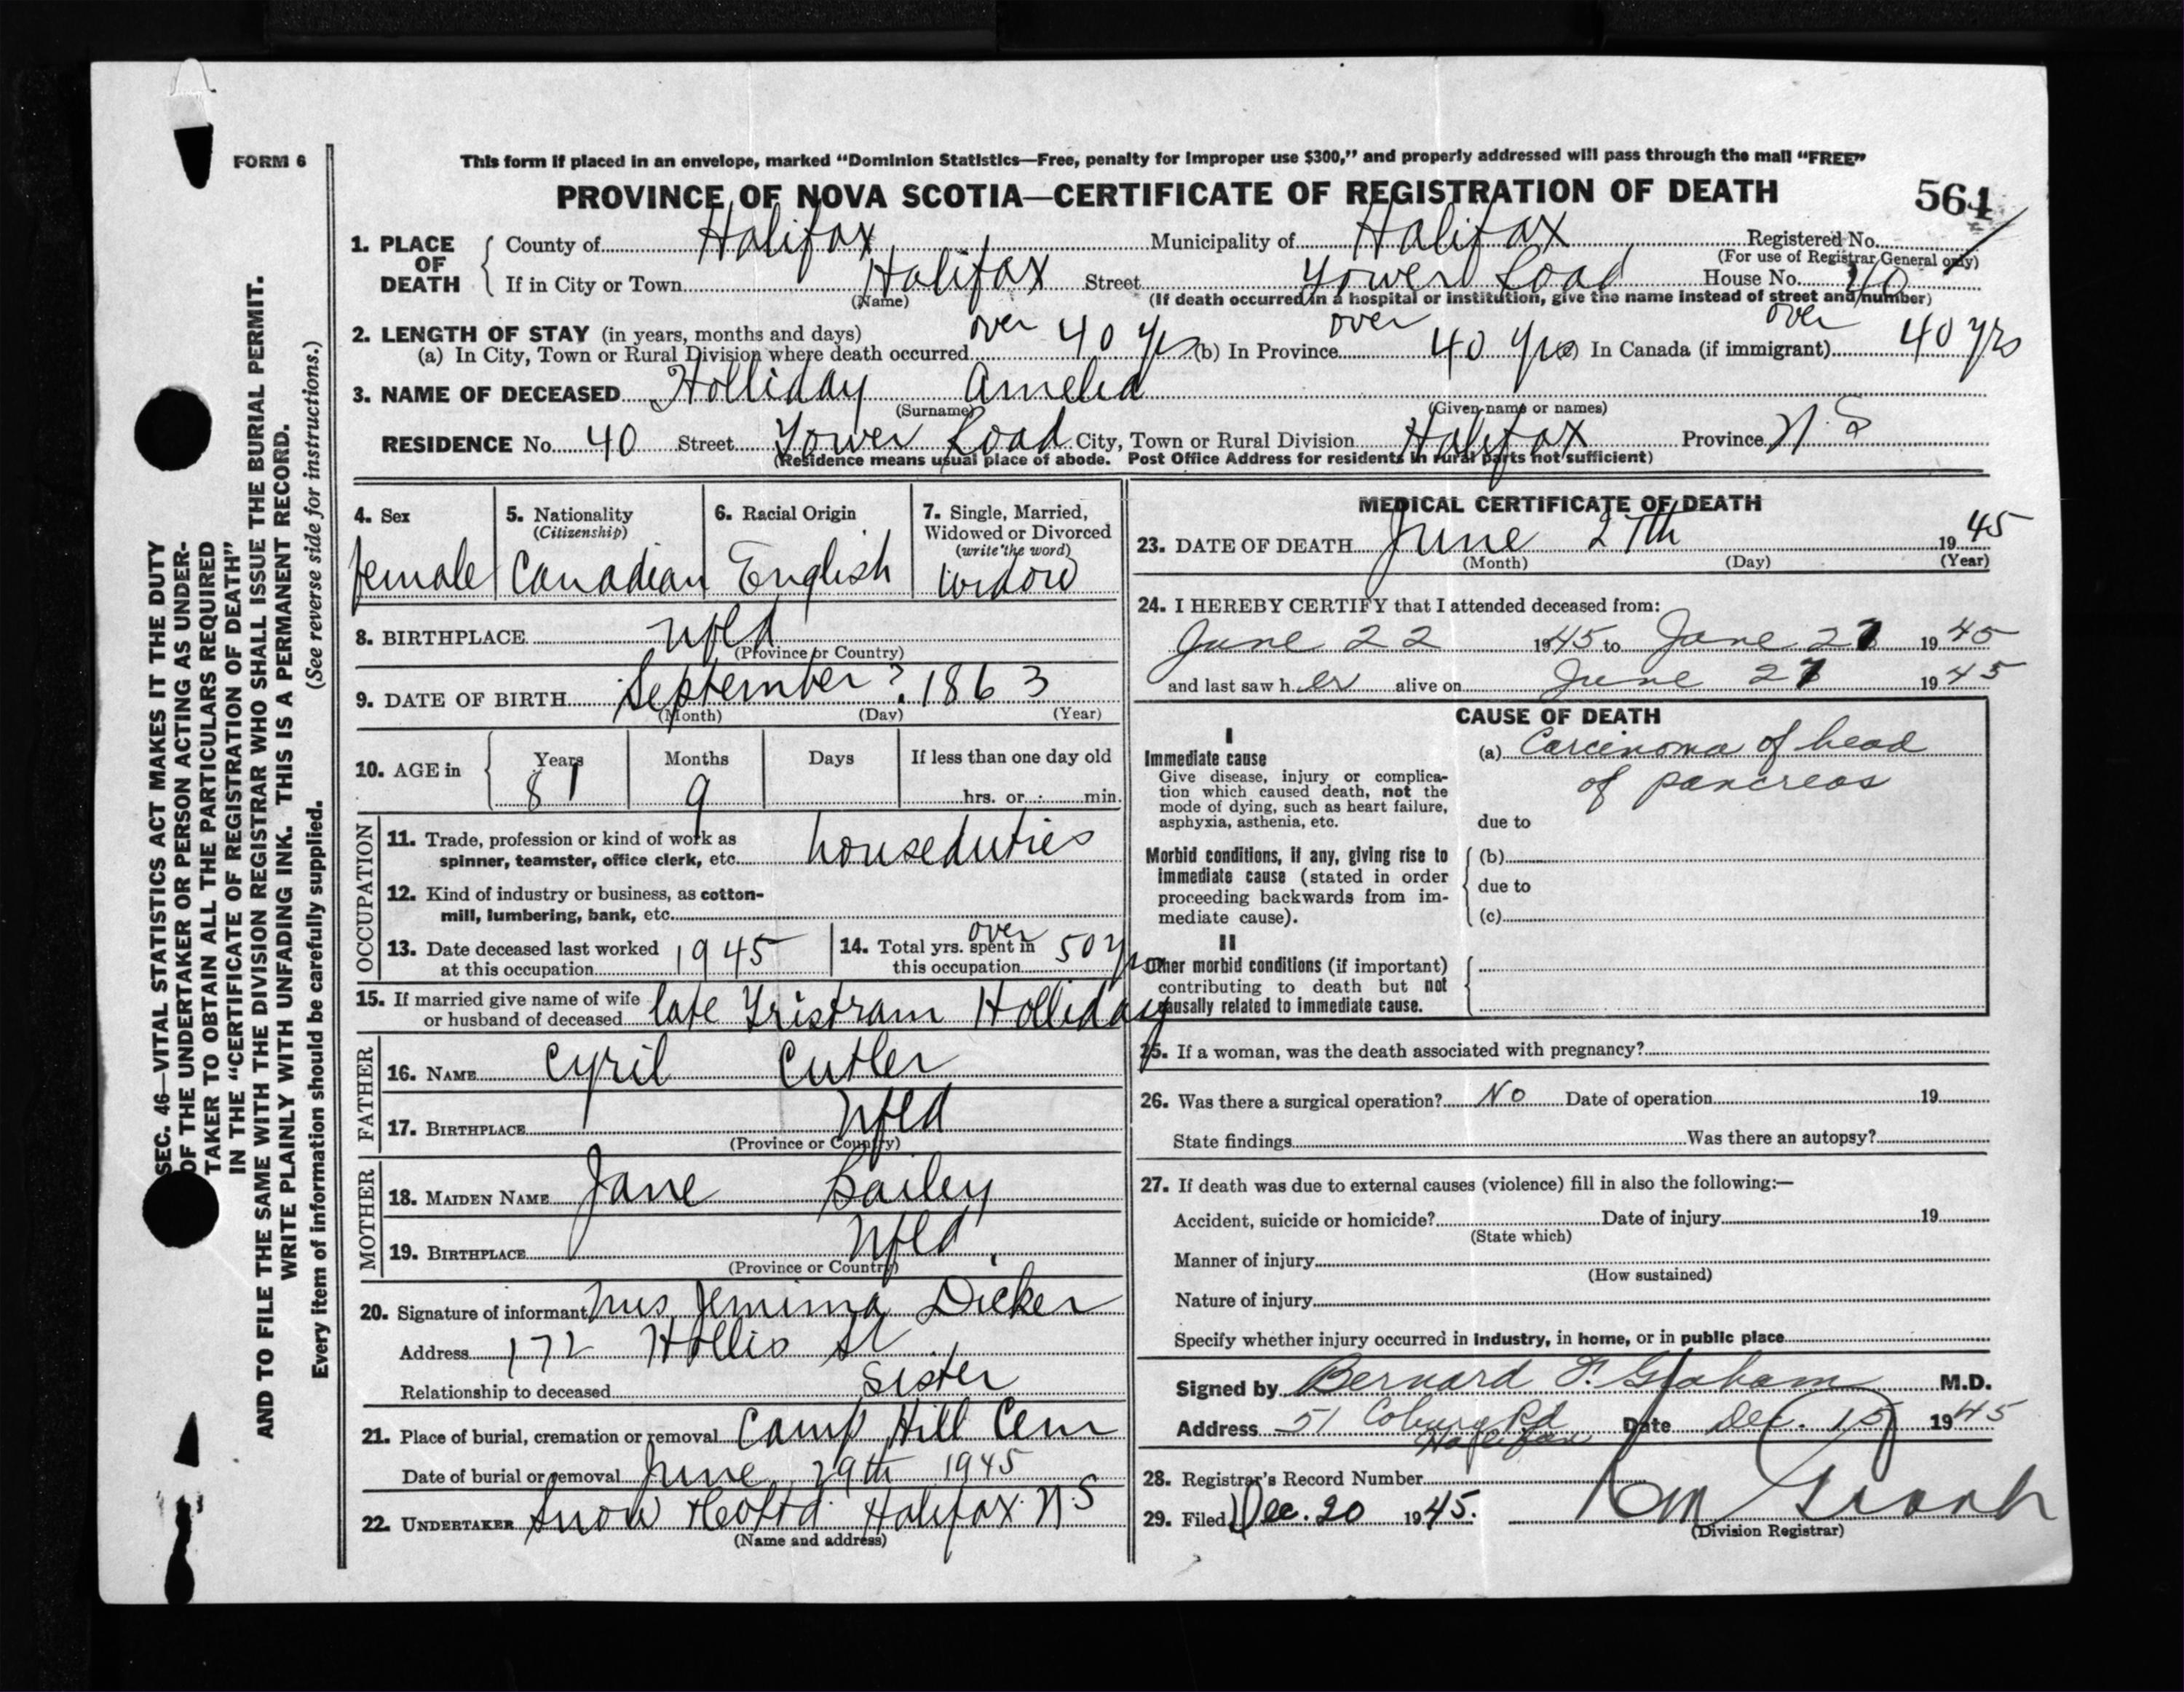 FORM 6
This form if placed in an envelope, marked “Dominion Statistics—Free, penalty for improper use $300,” and properly addressed will pass through the mail “FREE”
PROVINCE OF NOVA SCOTIA—CERTIFICATE OF REGISTRATION OF DEATH 564
1. PLACE OF DEATH
County of Halifax Municipality of Halifax Registered No.
(For use of Registrar General only)
If in City or Town Halifax Street Tower Road House No. 40
(Name) (If death occurred in a hospital or institution, give the name instead of street and number)
2. LENGTH OF STAY (in years, months and days)
(a) In City, Town or Rural Division where death occurred over 40 yrs (b) In Province over 40 yrs (c) In Canada (if immigrant) over 40 yrs
3. NAME OF DECEASED Holliday Amelia
(Surname) (Given name or names)
RESIDENCE No. 40 Street Tower Road City, Town or Rural Division Halifax Province N.S
(Residence means usual place of abode. Post Office Address for residents in rural parts not sufficient)
4. Sex
female
5. Nationality
(Citizenship)
Canadian
6. Racial Origin
English
7. Single, Married,
Widowed or Divorced
(write the word)
widow
8. BIRTHPLACE Nfld
(Province or Country)
9. DATE OF BIRTH September ?, 1863
(Month) (Day) (Year)
10. AGE in
Years Months Days If less than one day old
81 9 hrs. or min.
OCCUPATION
11. Trade, profession or kind of work as
spinner, teamster, office clerk, etc. houseduties
12. Kind of industry or business, as cotton-
mill, lumbering, bank, etc.
13. Date deceased last worked
at this occupation 1945
14. Total yrs. spent in
this occupation over 50 yrs
15. If married give name of wife
or husband of deceased late Tristram Holliday
FATHER
16. NAME Cyril Cutler
17. BIRTHPLACE Nfld
(Province or Country)
MOTHER
18. MAIDEN NAME Jane Bailey
19. BIRTHPLACE Nfld.
(Province or Country)
20. Signature of informant Mrs Jemima Dicker
Address 172 Hollis St
Relationship to deceased Sister
21. Place of burial, cremation or removal Camp Hill Cem
Date of burial or removal June 29th 1945
22. UNDERTAKER Snow & Co Ltd Halifax N.S
(Name and address)
MEDICAL CERTIFICATE OF DEATH
23. DATE OF DEATH June 27th 1945
(Month) (Day) (Year)
24. I HEREBY CERTIFY that I attended deceased from:
June 22 1945 to June 27 1945
and last saw her alive on June 27 1945
CAUSE OF DEATH
I
Immediate cause
Give disease, injury or complica-
tion which caused death, not the
mode of dying, such as heart failure,
asphyxia, asthenia, etc.
(a) Carcinoma of head
of pancreas
due to
Morbid conditions, if any, giving rise to
immediate cause (stated in order
proceeding backwards from im-
mediate cause).
(b)
due to
(c)
II
Other morbid conditions (if important)
contributing to death but not
causally related to immediate cause.
25. If a woman, was the death associated with pregnancy?
26. Was there a surgical operation? No Date of operation 19
State findings Was there an autopsy?
27. If death was due to external causes (violence) fill in also the following:—
Accident, suicide or homicide? Date of injury 19
(State which)
Manner of injury
(How sustained)
Nature of injury
Specify whether injury occurred in industry, in home, or in public place
Signed by Bernard F. Graham M.D.
Address 51 Coburg Rd Date Dec. 15 1945
Halifax
28. Registrar's Record Number
29. Filed Dec. 20 1945.
(Division Registrar)
SEC. 46—VITAL STATISTICS ACT MAKES IT THE DUTY
OF THE UNDERTAKER OR PERSON ACTING AS UNDER-
TAKER TO OBTAIN ALL THE PARTICULARS REQUIRED
IN THE “CERTIFICATE OF REGISTRATION OF DEATH”
AND TO FILE THE SAME WITH THE DIVISION REGISTRAR WHO SHALL ISSUE THE BURIAL PERMIT.
WRITE PLAINLY WITH UNFADING INK. THIS IS A PERMANENT RECORD.
Every item of information should be carefully supplied. (See reverse side for instructions.)